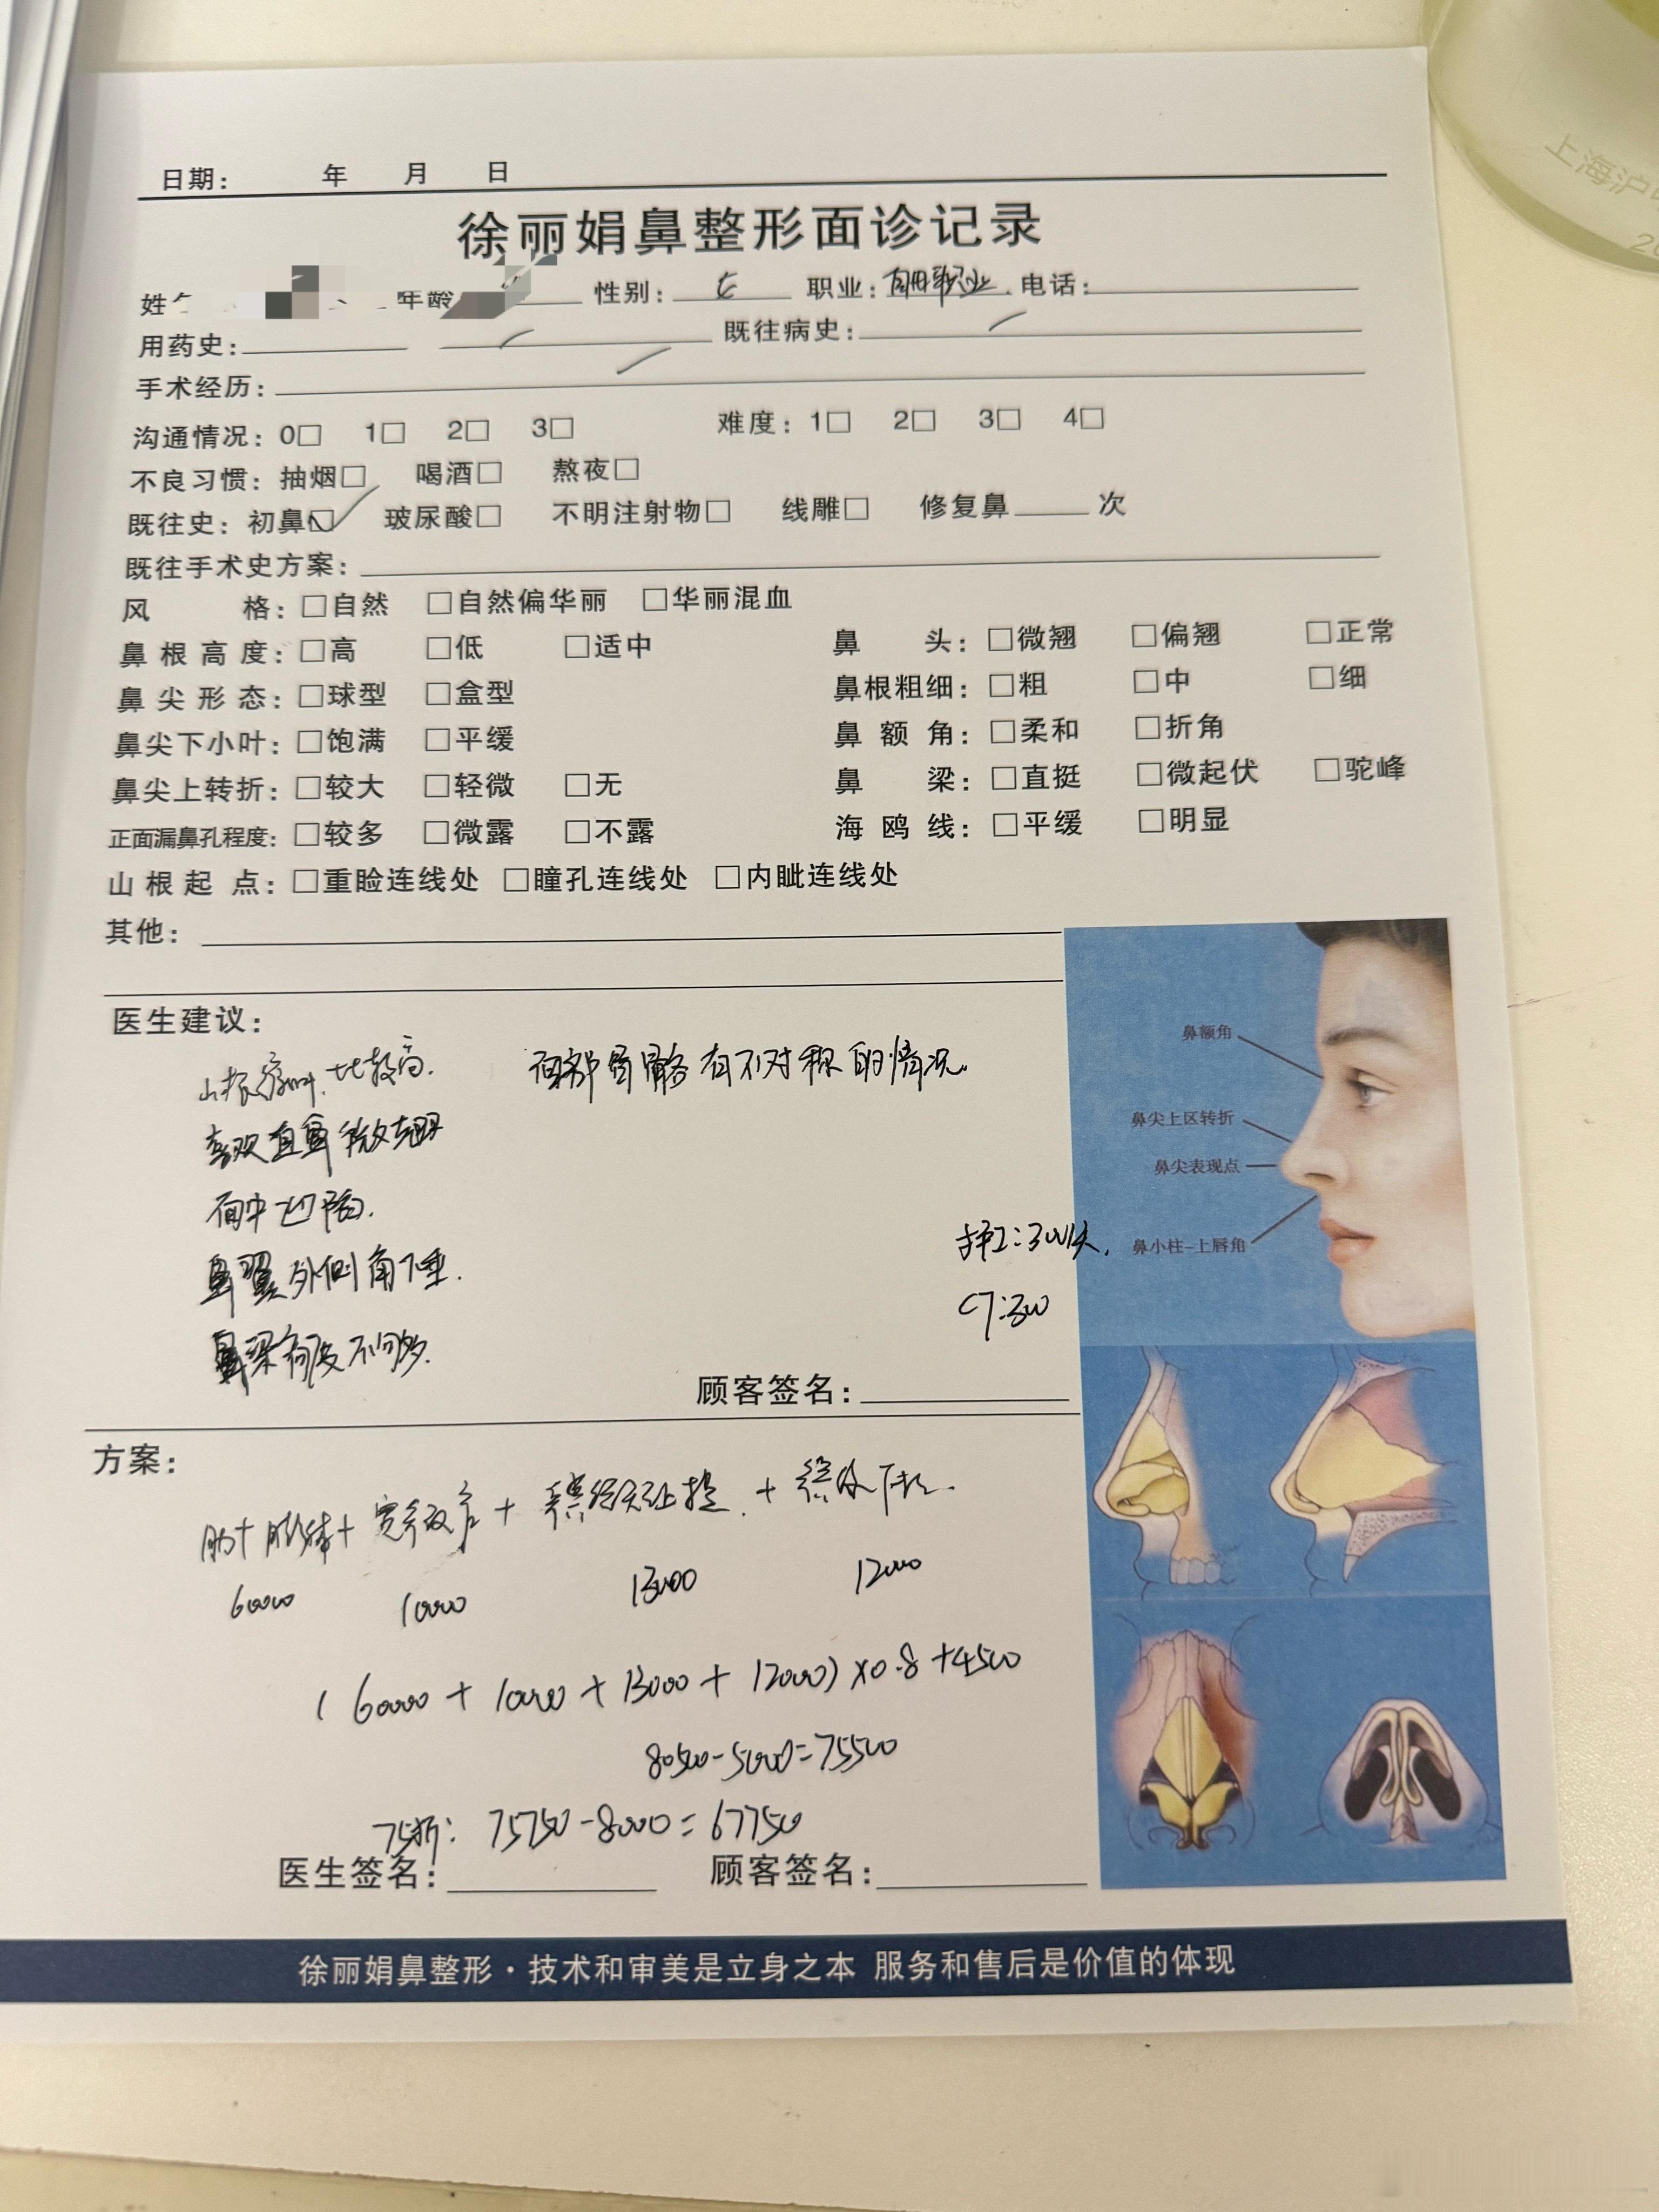 上海沪
日期： 年 月 日
徐丽娟鼻整形面诊记录
年龄 性别：女 职业：自由职业 电话：
用药史： 既往病史：
手术经历：
沟通情况：0□ 1□ 2□ 3□ 难度：1□ 2□ 3□ 4□
不良习惯：抽烟□ 喝酒□ 熬夜□
既往史：初鼻☑ 玻尿酸□ 不明注射物□ 线雕□ 修复鼻____次
既往手术史方案：
风格：□自然 □自然偏华丽 □华丽混血
鼻根高度：□高 □低 □适中 鼻头：□微翘 □偏翘 □正常
鼻尖形态：□球型 □盒型 鼻根粗细：□粗 □中 □细
鼻尖下小叶：□饱满 □平缓 鼻额角：□柔和 □折角
鼻尖上转折：□较大 □轻微 □无 鼻梁：□直挺 □微起伏 □驼峰
正面漏鼻孔程度：□较多 □微露 □不露 海鸥线：□平缓 □明显
山根起点：□重睑连线处 □瞳孔连线处 □内眦连线处
其他：
医生建议：
山根 比较高. 面部骨骼有不对称的情况.
喜欢直鼻微翘
面中凹陷.
鼻翼外侧角下垂.
鼻梁 不够.
护工：300/天.
CT：300
顾客签名：
鼻额角
鼻尖上区转折
鼻尖表现点
鼻小柱-上唇角
方案：
肋+膨体+ + +
60000 10000 13000 12000
(60000+10000+13000+12000)×0.8+4500
80500-5000=75500
75折：75750-8000=67750
医生签名： 顾客签名：
徐丽娟鼻整形·技术和审美是立身之本 服务和售后是价值的体现